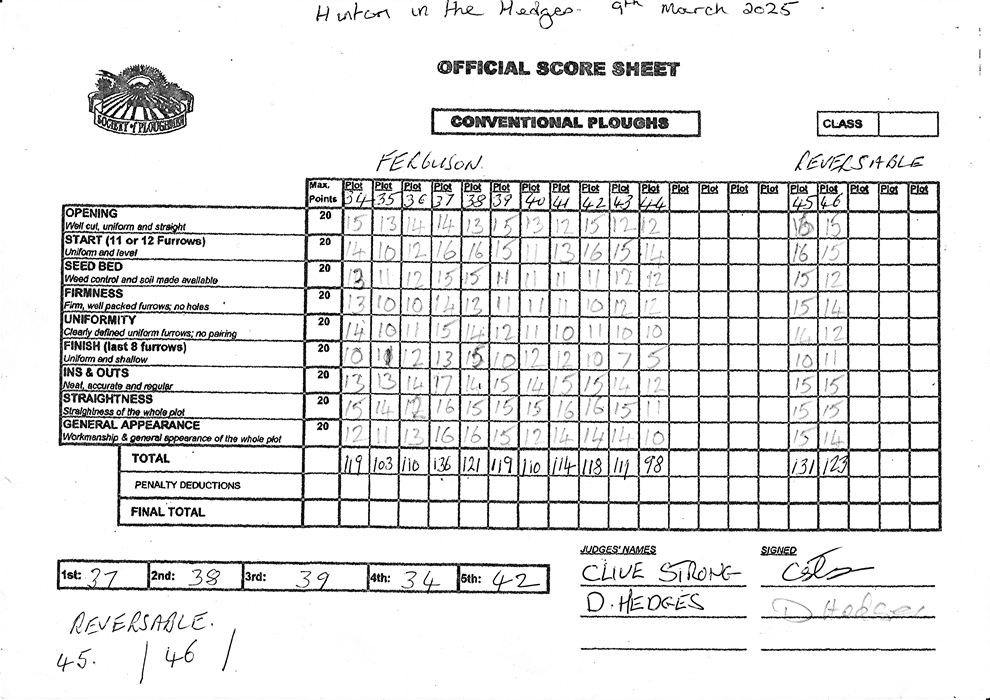 Hinton in the Hedges. 9th March 2025.
OFFICIAL SCORE SHEET
SOCIETY of PLOUGHMEN
CONVENTIONAL PLOUGHS
CLASS
FERGUSON. REVERSABLE
Max. Points Plot 34 Plot 35 Plot 36 Plot 37 Plot 38 Plot 39 Plot 40 Plot 41 Plot 42 Plot 43 Plot 44 Plot Plot Plot Plot Plot 45 Plot 46 Plot Plot Plot
OPENING 20 15 13 14 14 13 15 13 12 15 12 12 15
Well cut, uniform and straight
START (11 or 12 Furrows) 20 14 10 12 16 16 15 11 13 16 15 14 16 15
Uniform and level
SEED BED 20 13 11 12 15 15 11 11 11 11 12 12 15 12
Weed control and soil made available
FIRMNESS 20 13 10 10 14 13 11 11 11 10 12 12 15 14
Firm, well packed furrows; no holes
UNIFORMITY 20 14 10 11 15 14 12 11 10 11 10 10 14 12
Clearly defined uniform furrows; no pairing
FINISH (last 8 furrows) 20 10 12 13 15 10 12 12 10 7 5 10 11
Uniform and shallow
INS & OUTS 20 13 13 14 17 14 15 14 15 15 14 12 15 15
Neat, accurate and regular
STRAIGHTNESS 20 15 14 12 16 15 15 15 16 16 15 11 15 15
Straightness of the whole plot
GENERAL APPEARANCE 20 12 11 13 16 16 15 12 14 14 14 10 15 14
Workmanship & general appearance of the whole plot
TOTAL 119 103 110 136 121 119 110 114 118 111 98 131 123
PENALTY DEDUCTIONS
FINAL TOTAL
1st: 37 2nd: 38 3rd: 39 4th: 34 5th: 42
JUDGES' NAMES SIGNED
CLIVE STRONG
D. HEDGES D Hedges
REVERSABLE.
45. / 46 /